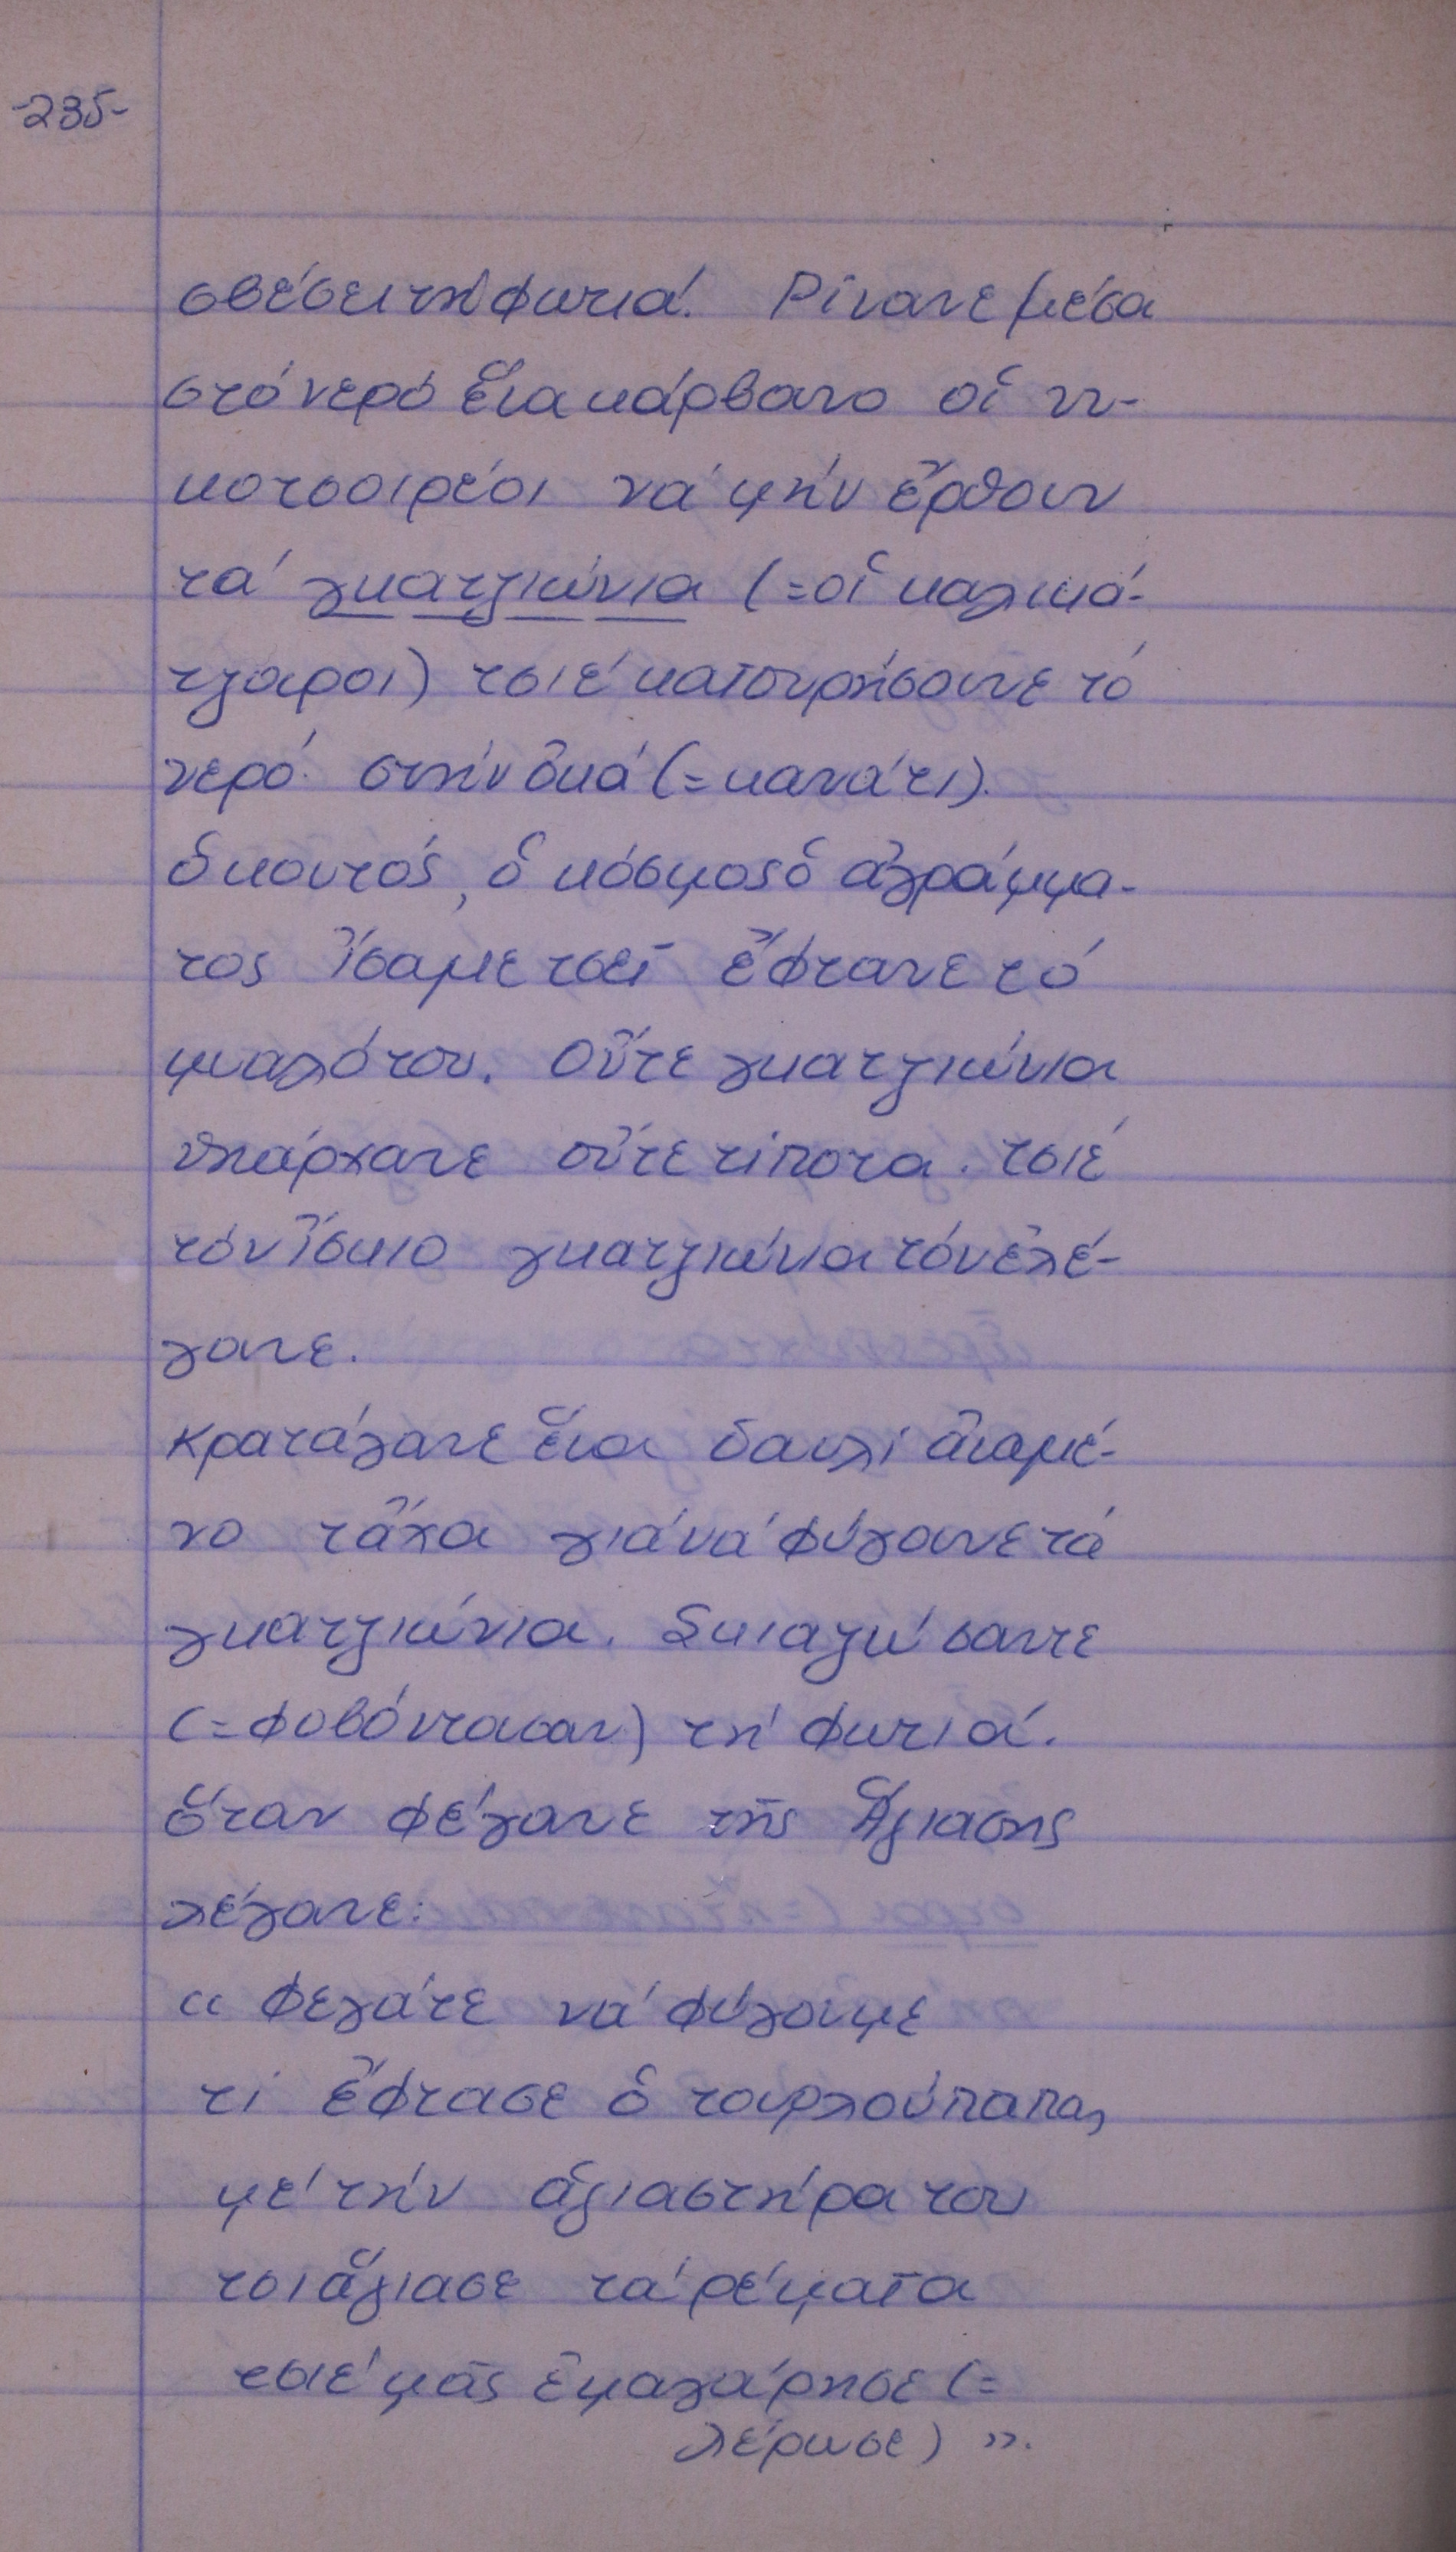 -235-
σβέσει τή φωτιά. Ρίνανε μέσα
στό νερό ἕνα κάρβουνο οἱ νι-
κοτσοιρέοι νά μήν ἔρθουν
τά γκατζιώνια (=οἱ καλικά-
τζαροι) τσιέ κατουρήσουνε τό
νερό στήν ὀκά (=κανάτι).
Ὁ κουτός, ὁ κόσμος ὁ ἀγράμμα-
τος ἴσαμε τσεῖ ἔφτανε τό
μυαλό του. Οὔτε γκατζιώνια
ὑπάρχανε οὔτε τίποτα. τσιέ
τόν ἴσκιο γκατζιώνια τόν ἐλέ-
γανε.
Κρατάγανε ἕνα δαυλί ἀναμέ-
νο τἄχα γιά νά φύγουνε τά
γκατζιώνια. Σκιαζώσαντε
(=φοβόντουσαν) τή φωτιά.
Ὅταν φέγανε τῆς Ἁγιασης
λέγανε:
« Φεγᾶτε νά φύγουμε
τί ἔφτασε ὁ τουρλούπαπας
μέ τήν ἁγιαστήρα του
τσι ἅγιασε τά ρέματα
τσιέ μᾶς ἐμαγάρησε (=
λέρωσε) ».